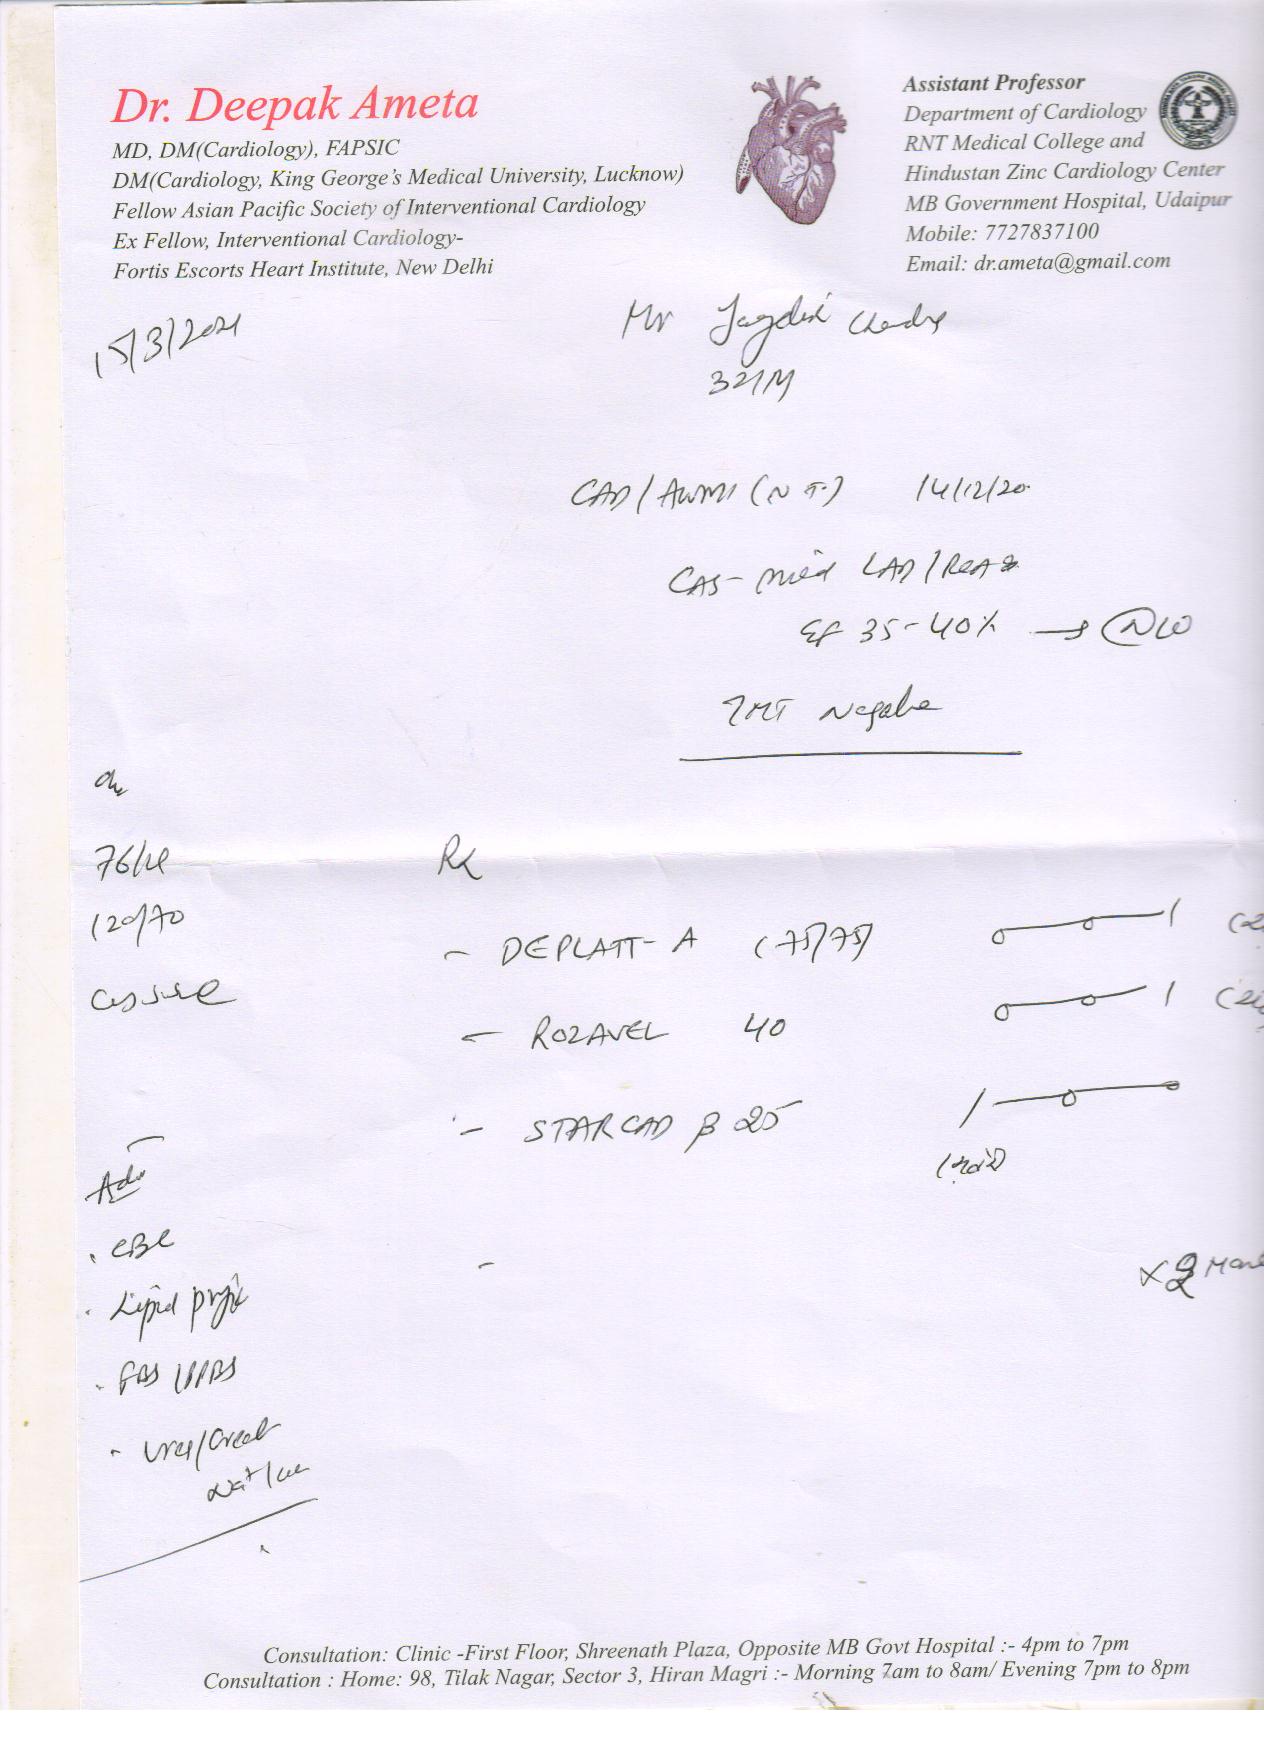 Dr. Deepak Ameta
MD, DM(Cardiology), FAPSIC
DM(Cardiology, King George's Medical University, Lucknow)
Fellow Asian Pacific Society of Interventional Cardiology
Ex Fellow, Interventional Cardiology-
Fortis Escorts Heart Institute, New Delhi
Assistant Professor
Department of Cardiology
RNT Medical College and
Hindustan Zinc Cardiology Center
MB Government Hospital, Udaipur
Mobile: 7727837100
Email: dr.ameta@gmail.com
15/3/2021
Mr Jagdish
32/M
CAD/AWMI (N T.) 14/12/20
CAG- LAD/
EF 35-40% →
TMT Negative
76/
120/70
Rx
- DEPLATT-A (75/75) 0-0-1
- ROZAVEL 40 0-0-1
- STARCAD β 25 1-0-0
x 2
Adv
. CBC
. Lipid profile
. FBS/PPBS
. Urea/Creat
Consultation: Clinic -First Floor, Shreenath Plaza, Opposite MB Govt Hospital :- 4pm to 7pm
Consultation : Home: 98, Tilak Nagar, Sector 3, Hiran Magri :- Morning 7am to 8am/ Evening 7pm to 8pm